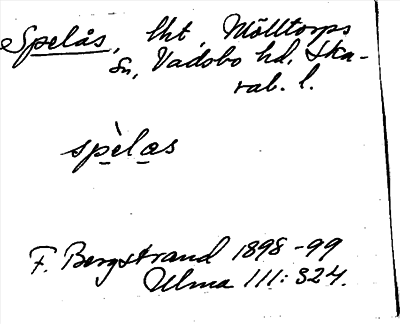 Spelås, lht, Mölltorps
sn, Vadsbo hd, Ska-
rab. l.
spèlas
F. Bergstrand 1898-99
Ulma 111: 324.